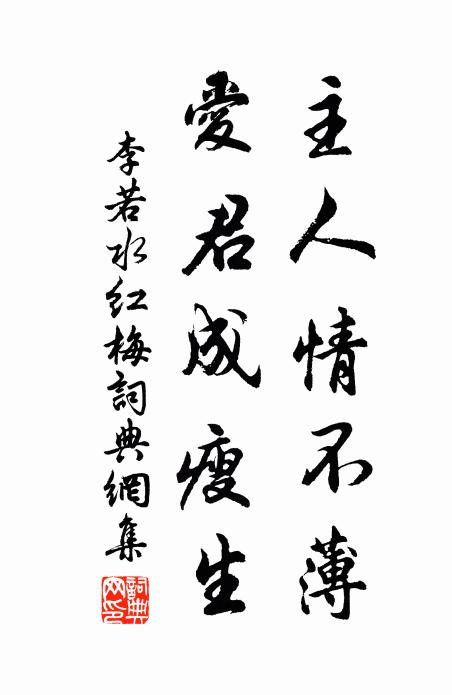 主人情不薄
愛君成瘦生
李若水紅梅詞典網集
詞典
网印